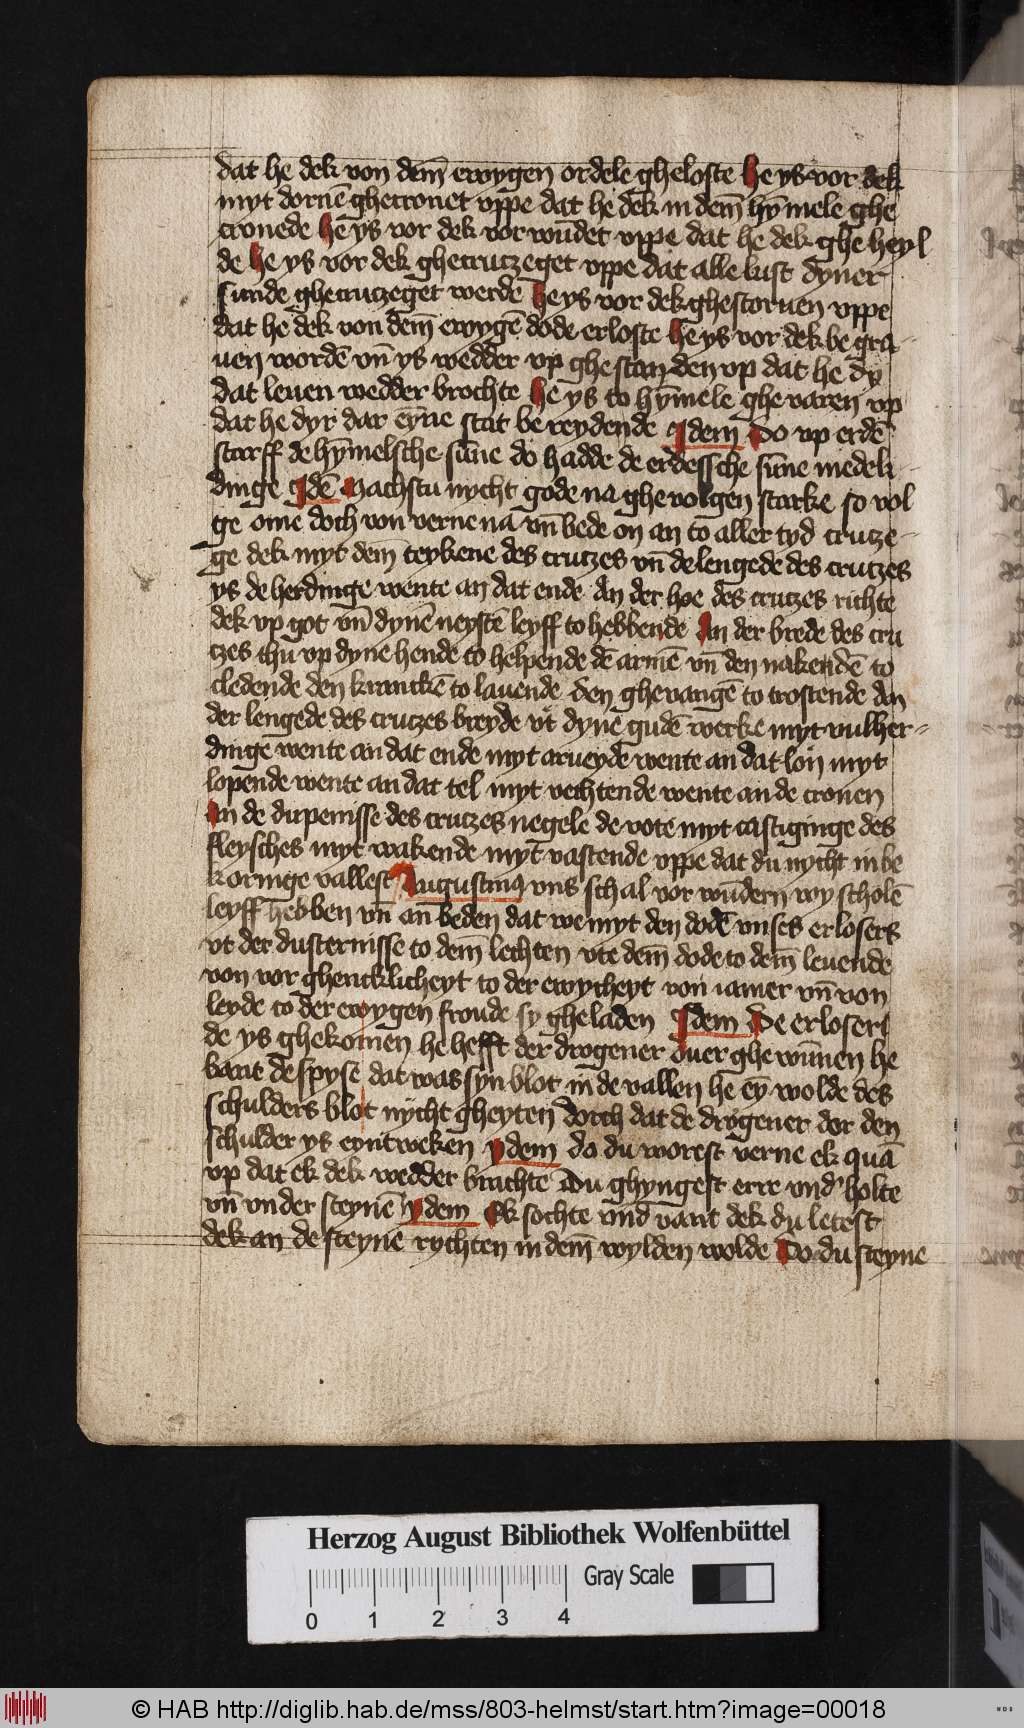 dat he dek von dem̄ ewygen ordele gheloste he ys vor dek
myt dornē ghecronet vppe dat he dek in dem̄ hȳmele ghe
cronede he ys vor dek vor wūdet vppe dat he dek ghe heyl
de he ys vor dek ghecrutzeget vppe dat alle lust dyner
sunde ghecrutzeget werde he ys vor dek ghestoruen vppe
dat he dek von dem̄ ewygē dode erloste he ys vor dek be gra-
uen wordē vn̄ ys wedder vp ghe standen vp dat he dy
dat leuen wedder brochte he ys to hȳmele ghe varen vp
dat he dyr dar eyne stat be reydende Idem Do vp erdē
starff de hȳmelsche sūne do hadde de erdessche sūne medelı-
dinge Idē Machstu nycht gode na ghe volgen starke so vol
ge ome doch von verne na vn̄ bede on an to aller tyd crutze-
ge dek myt dem̄ teykene des crutzes vn̄ de lengede des crutzes
ys de herdinge wente an dat ende An der hoe des crutzes richte
dek vp got vn̄ dynē neystē leyff to hebbende An der brede des cru
tzes thu vp dyne hende to helpende dē armē vn̄ den nakendē to
cledende den kranckē to lauende den ghe vangē to trostende An
der lengede des crutzes breyde vt dyne gudē werke myt vulher-
dinge wente an dat ende myt arueyde wente an dat lon myt
lopende wente an dat tel myt vechtende wente an de cronen
An de dupenisse des crutzes negele de vote myt castiginge des
fleysches myt wakende myt vastende vppe dat du nycht in be
koringe vallest Augustinꝰ vns schal vor wūdern wy scholē
leyff hebben vn̄ an beden dat we myt den dodē vnses erlosers
vt der dusternisse to dem̄ lechten vte dem̄ dode to dem̄ leuende
von vor ghencklicheyt to der ewycheyt von iamer vn̄ von
leyde to der ewygen froude sy ghe laden Idem De erloser
de ys ghekomen he hefft der drogener ouer ghe wūnen he
bant de spyse dat was syn blot in de vallen he ey wolde des
schulders blot nycht gheyten dorch dat de drogener dor den
schulder ys eyntweken ydem do du worest verne ek quā
vp dat ek dek wedder brachte Du ghyngest erre vnd' holte
vn̄ vnder steynē ydem Ek sochte vnd vant dek du letest
dek an de steyne rychten in dem̄ wylden wolde Do du steyne
Herzog August Bibliothek Wolfenbüttel
Gray Scale
0 1 2 3 4
© HAB http://diglib.hab.de/mss/803-helmst/start.htm?image=00018